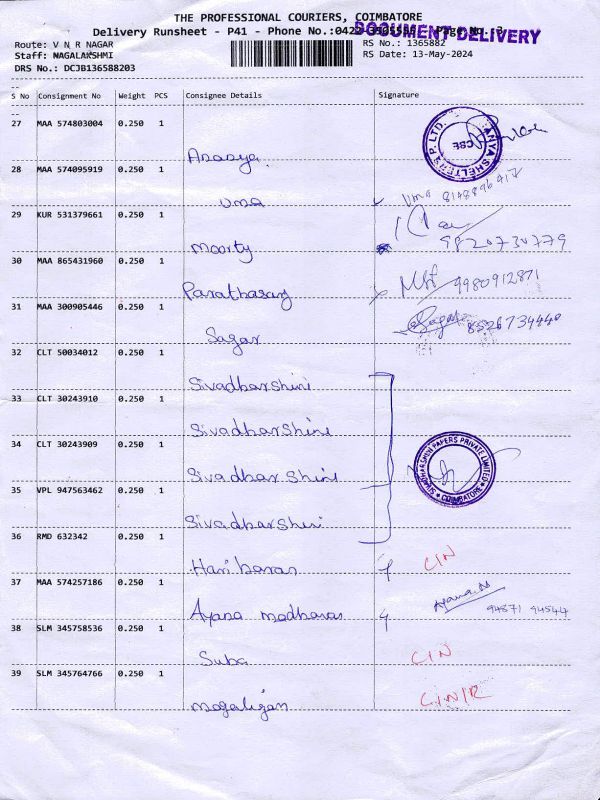 THE PROFESSIONAL COURIERS, COIMBATORE
Delivery Runsheet - P41 - Phone No.:0422 Page No. 3
DOCUMENT DELIVERY
Route: V N R NAGAR
RS No.: 1365882
Staff: NAGALAKSHMI
RS Date: 13-May-2024
DRS No.: DCJB136588203
S No Consignment No Weight PCS Consignee Details Signature
27 MAA 574803004 0.250 1
Ananya
28 MAA 574095919 0.250 1
Uma Uma
29 KUR 531379661 0.250 1
Moorty 9820730779
30 MAA 865431960 0.250 1
Parathasary 9980912871
31 MAA 300905446 0.250 1
Sagar Sagar 8526734440
32 CLT 50034012 0.250 1
Sivadharshini
33 CLT 30243910 0.250 1
Sivadharshini
34 CLT 30243909 0.250 1
Sivadharshini
PAPERS PRIVATE LIMITED
COIMBATORE
35 VPL 947563462 0.250 1
Sivadharshini
36 RMD 632342 0.250 1
Hariharan CIN
37 MAA 574257186 0.250 1
Ayana madhavan 94871 94544
38 SLM 345758536 0.250 1
Suba CIN
39 SLM 345764766 0.250 1
Magaligan CINIR